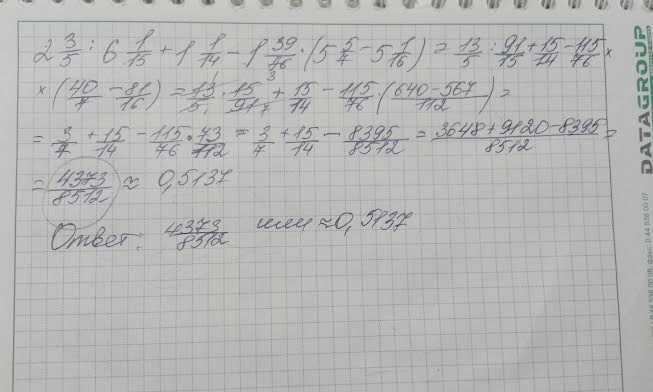 2 3/5 : 6 1/15 + 1 1/14 - 1 39/76 · (5 5/7 - 5 1/16) = 13/5 : 91/15 + 15/14 - 115/76 ×
× (40/7 - 81/16) = 13/5 · 15/91 + 15/14 - 115/76 · (640-567/112) =
= 3/7 + 15/14 - 115/76 · 73/112 = 3/7 + 15/14 - 8395/8512 = 3648+9120-8395/8512 =
= 4373/8512 ≈ 0,5137
Ответ: 4373/8512 или ≈0,5137
DATAGROUP